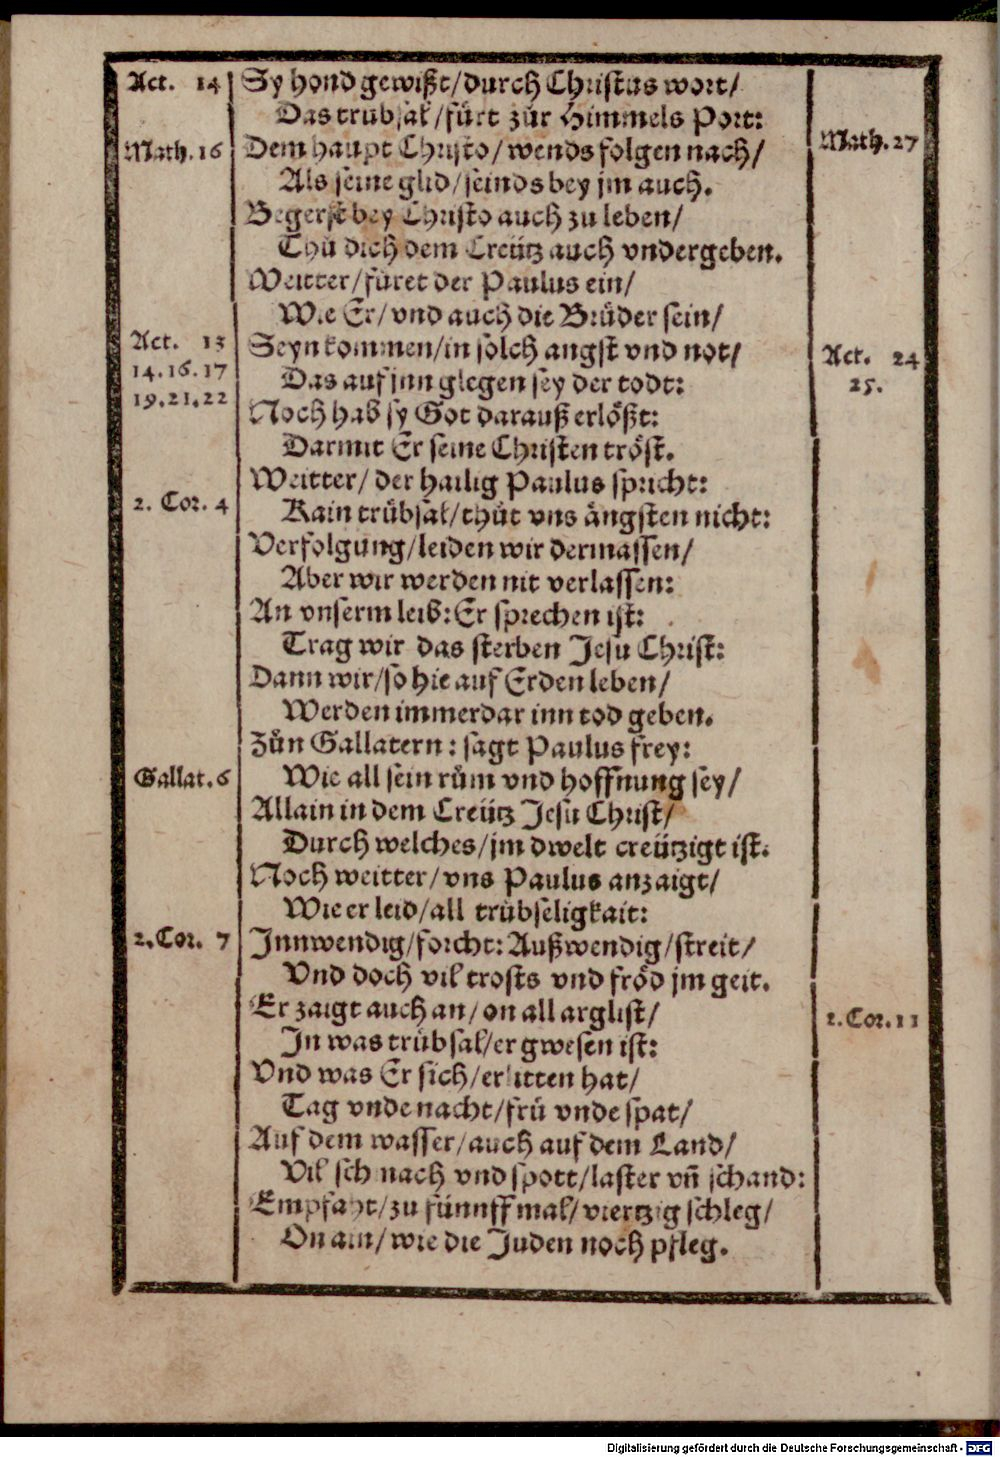 Act. 14 Sy hond gewißt/durch Christus wort/
Das trübsal/fürt zůr Himmels Port:
Math. 16 Dem haupt Christo/wends folgen nach/ Math. 27
Als seine glid/seinds bey jm auch.
Begerst bey Christo auch zu leben/
Thů dich dem Creütz auch vndergeben.
Weitter/füret der Paulus ein/
Wie Er/vnd auch die Brüder sein/
Act. 13 Seyn kommen/in solch angst vnd not/ Act. 24
14.16.17 Das auf jnn glegen sey der todt: 25.
19.21.22 Noch hab sy Got darauß erlößt:
Darmit Er seine Christen tröst.
Weitter/der hailig Paulus spricht:
2. Cor. 4 Kain trübsal/thůt vns ängsten nicht:
Verfolgung/leiden wir dermassen/
Aber wir werden nit verlassen:
An vnserm leib: Er sprechen ist:
Trag wir das sterben Jesu Christ:
Dann wir/so hie auf Erden leben/
Werden immerdar inn tod geben.
Zůn Gallatern: sagt Paulus frey:
Gallat. 6 Wie all sein rům vnd hoffnung sey/
Allain in dem Creütz Jesu Christ/
Durch welches/jm dwelt creützigt ist.
Noch weitter/vns Paulus anzaigt/
Wie er leid/all trübseligkait:
2. Cor. 7 Innwendig/forcht: Außwendig/streit/
Vnd doch vil trosts vnd fröd jm geit.
Er zaigt auch an/on all arglist/ 2. Cor. 11
In was trübsal/er gwesen ist:
Vnd was Er sich/erlitten hat/
Tag vnde nacht/frü vnde spat/
Auf dem wasser/auch auf dem Land/
Vil schmach vnd spott/laster vñ schand:
Empfaht/zu fünnff mal/viertzig schleg/
On ain/wie die Juden noch pfleg.
Digitalisierung gefördert durch die Deutsche Forschungsgemeinschaft - DFG